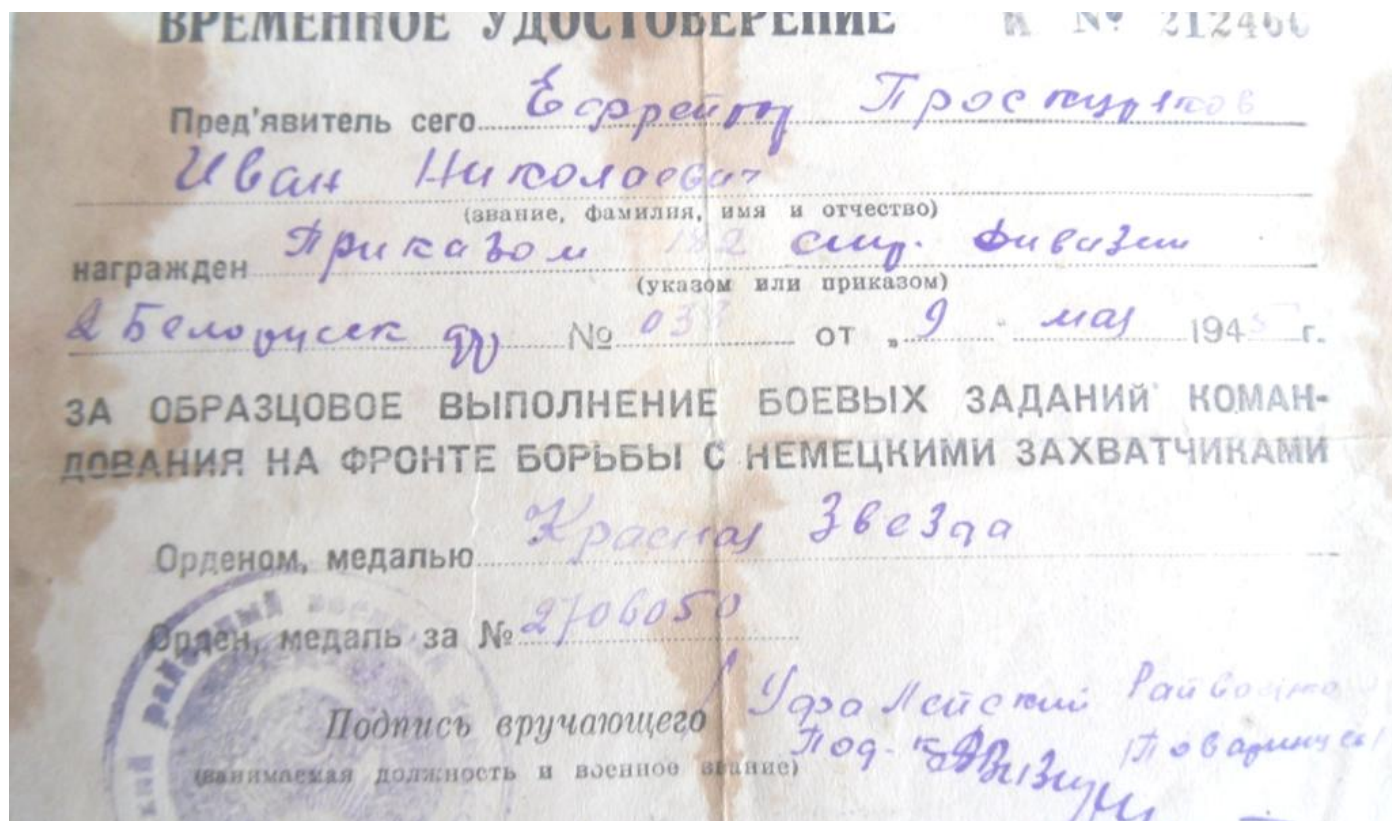 ВРЕМЕННОЕ УДОСТОВЕРЕНИЕ К № 212460
Пред'явитель сего Ефрейтор Проскуряков
Иван Николаевич
(звание, фамилия, имя и отчество)
награжден Приказом 182 стр. дивизии
(указом или приказом)
2 Белорусск фр № 03 от „9 мая 1945 г.
ЗА ОБРАЗЦОВОЕ ВЫПОЛНЕНИЕ БОЕВЫХ ЗАДАНИЙ КОМАН-
ДОВАНИЯ НА ФРОНТЕ БОРЬБЫ С НЕМЕЦКИМИ ЗАХВАТЧИКАМИ
Орденом, медалью Красная Звезда
Орден, медаль за № 2706050
Подпись вручающего Уфалейский Райвоенко
(занимаемая должность и военное звание) Под-к
районный